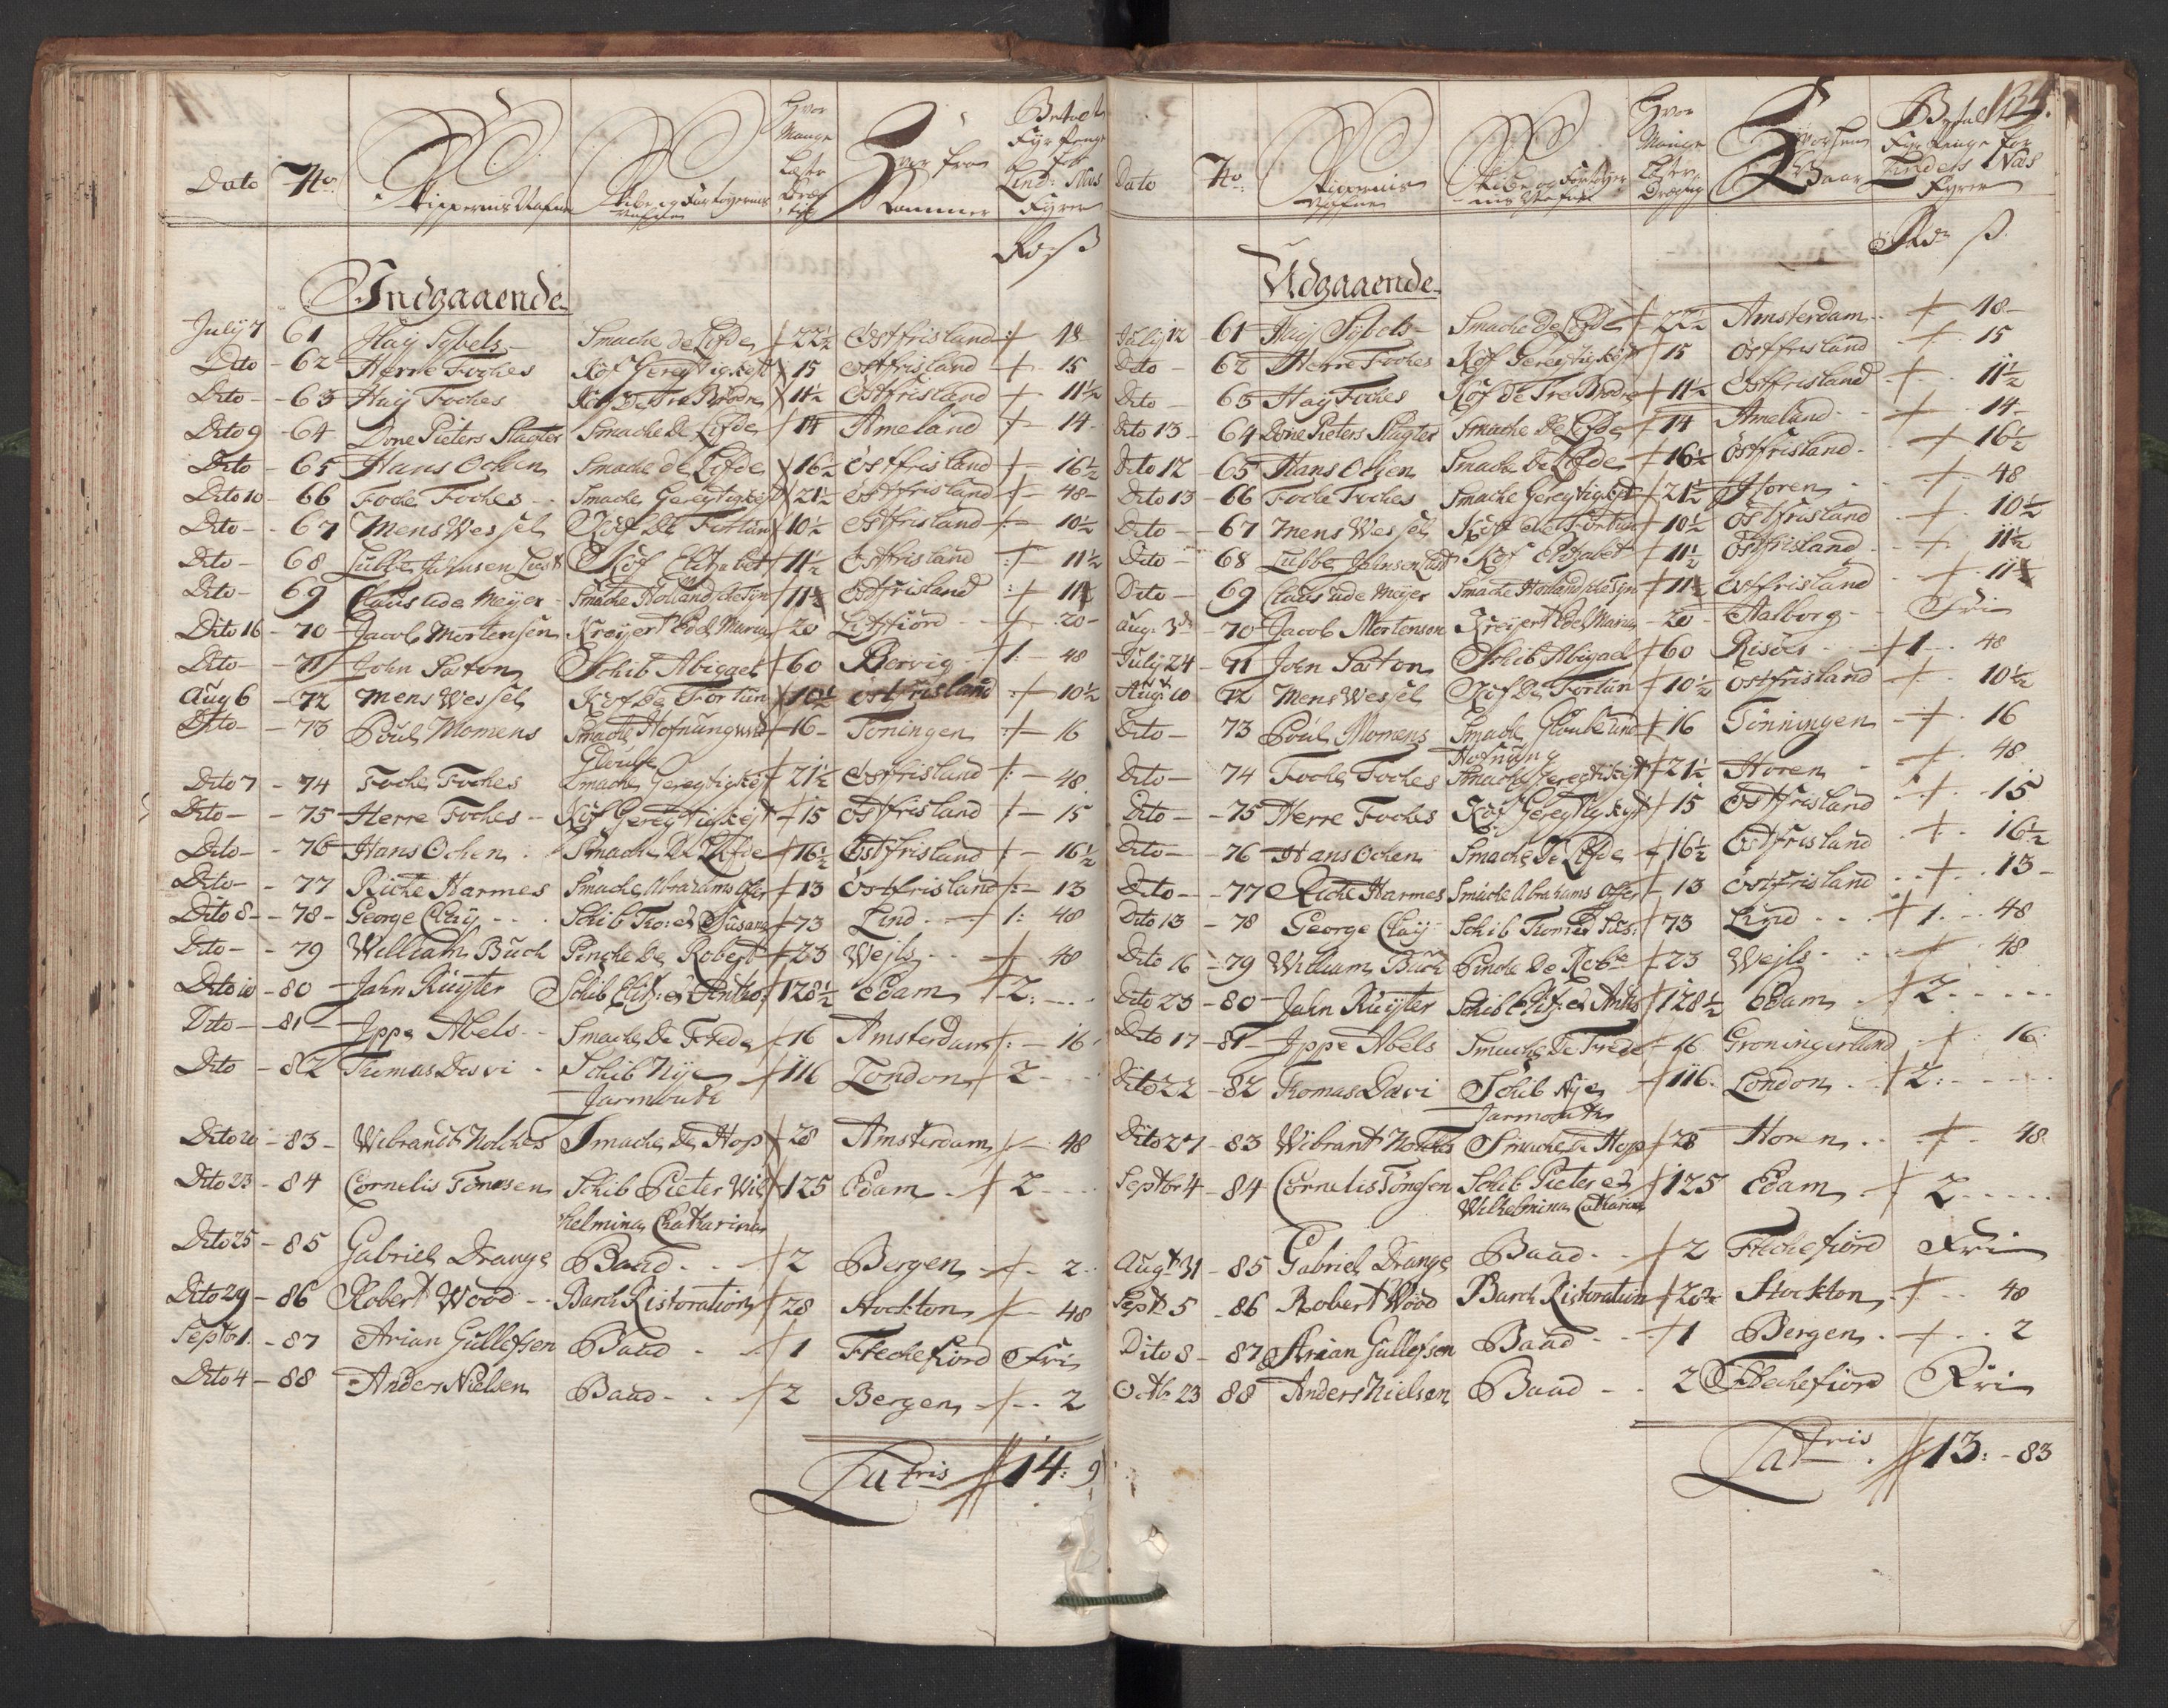 Dato No. Skippernis Nafne Skibe og Fartøyernis Nafne Hvor Mange Læster Drægtig Hvor fra Kommer Betalt Fyr Penge for Lind: Næs Fyrer
Rd ß
Indgaaende
July 7 61 Hay Sybels Smache de Lifde 22½ Ostfrisland 48
Dito 62 Herre Foches Kof Gereytigkeyt 15 Ostfrisland 15
Dito 63 Hay Foches Kof De Tre Brødre 11½ Ostfrisland 11½
Dito 9 64 Done Pieters Slagter Smache De Lifde 14 Ameland 14
Dito 65 Hans Ochen Smache de Lifde 16½ Ostfrisland 16½
Dito 10 66 Foche Foches Smache Gereytigkeyt 21½ Ostfrisland 48
Dito 67 Mens Wessel Kof De Fortun 10½ Ostfrisland 10½
Dito 68 Lubbe Jahnsen Kof Elisabet 11½ Ostfrisland 11½
Dito 69 Claus Meyer Smache Holland 11½ Ostfrisland 11½
Dito 16 70 Jacob Mortensen Kreyert Edel Maria 20 Liffiord 20
Dito 71 John Paton Schib Abigael 60 Bervig 1: 48
Aug 6 72 Mens Wessel Kof De Fortun 10½ Ostfrisland 10½
Dito 73 Poul Momens Smache Hofnung und 16 Toningen 16
Gloube
Dito 7 74 Foche Foches Smache Gereytigkeyt 21½ Ostfrisland 48
Dito 75 Herre Foches Kof Gereytigkeyt 15 Ostfrisland 15
Dito 76 Hans Ochen Smache De Lifde 16½ Ostfrisland 16½
Dito 77 Riche Harmes Smache Abrahams Offer 13 Ostfrisland 13
Dito 8 78 George Clay Schib Tho: et Susan 73 Lind 1: 48
Dito 79 William Buch Pinche De Robert 23 Wejls 48
Dito 10 80 Jahn Ruyter Schib Elis: et Antho: 128½ Edam 2:
Dito 81 Jppe Abels Smache De Frede 16 Amsterdam 16
Dito 82 Thomas Desvi Schib Nye 116 London 2
Jarmouth
Dito 20 83 Wibrandt Nolches Smache De Hop 28 Amsterdam 48
Dito 23 84 Cornelis Tonesen Schib Pieter Wil 125 Edam 2
helmina Chatharina
Dito 25 85 Gabriel Drange Baad 2 Bergen 2
Dito 29 86 Robert Wood Barch Ristoration 28 Stockton 48
Septbr 1 87 Arian Gullefsen Baad 1 Flechefiord Fri
Dito 4 88 Anders Nielsen Baad 2 Bergen 2
Latris 14: 9
134.
Dato No. Skippernis Nafne Skibe og Fartøyer nis Nafne Hvor Mange Læster Drægtig Hvorhen Faar Betalt Fyr Penge for Lindels Næs Fyrer
Rdr ß
Udgaaende
July 12 61 Hay Sybels Smache De Lifde 22½ Amsterdam 48
Dito 62 Herre Foches Kof Gereytigkeyt 15 Ostfrisland 15
Dito 63 Hay Foches Kof De Tre Brødre 11½ Ostfrisland 11½
Dito 13 64 Done Pieters Slagter Smache De Lifde 14 Ameland 14
Dito 12 65 Hans Ochen Smache De Lifde 16½ Ostfrisland 16½
Dito 13 66 Foche Foches Smache Gereytigkeyt 21½ Horen 48
Dito 67 Mens Wessel Kof De Fortun 10½ Ostfrisland 10½
Dito 68 Lubbe Jahnsen Kof Elisabet 11½ Ostfrisland 11½
Dito 69 Claus Meyer Smache Holland 11½ Ostfrisland 11½
Aug. 3d 70 Jacob Mortensen Kreyert Edel Maria 20 Aalborg Fri
July 24 71 John Paton Schib Abigael 60 Risøer 1 48
Augt 10 72 Mens Wessel Kof De Fortun 10½ Ostfrisland 10½
Dito 73 Poul Momens Smache Gloube und 16 Tonningen 16
Hofnung
Dito 74 Foche Foches Smache Gereytikeyt 21½ Horen 48
Dito 75 Herre Foches Kof Gereytigkeyt 15 Ostfrisland 15
Dito 76 Hans Ochen Smache De Lifde 16½ Ostfrisland 16½
Dito 77 Riche Harmes Smache Abrahams Offer 13 Ostfrisland 13
Dito 13 78 George Clay Schib Thom: et Sus: 73 Lind 1 48
Dito 16 79 William Buch Pinche De Robe 23 Wejls 48
Dito 23 80 Jahn Ruyter Schib Elis: et Antho 128½ Edam 2
Dito 17 81 Jppe Abels Smache De Frede 16 Groningerland 16
Dito 22 82 Thomas Davi Schib Nye 116 London 2:
Jarmouth
Dito 27 83 Wibrant Nolches Smache De Hop 28 Horen 48
Septbr 4 84 Cornelis Tonesen Schib Pieter et 125 Edam 2
Wilhelmina Catharina
Augt 31 85 Gabriel Drange Baad 2 Flechefiord Fri
Sept 5 86 Robert Wood Barch Ristoration 28 Stockton 48
Dito 8 87 Arian Gullefsen Baad 1 Bergen 2
Octb 23 88 Anders Nielsen Baad 2 Flechefiord Fri
Latris 13: 83